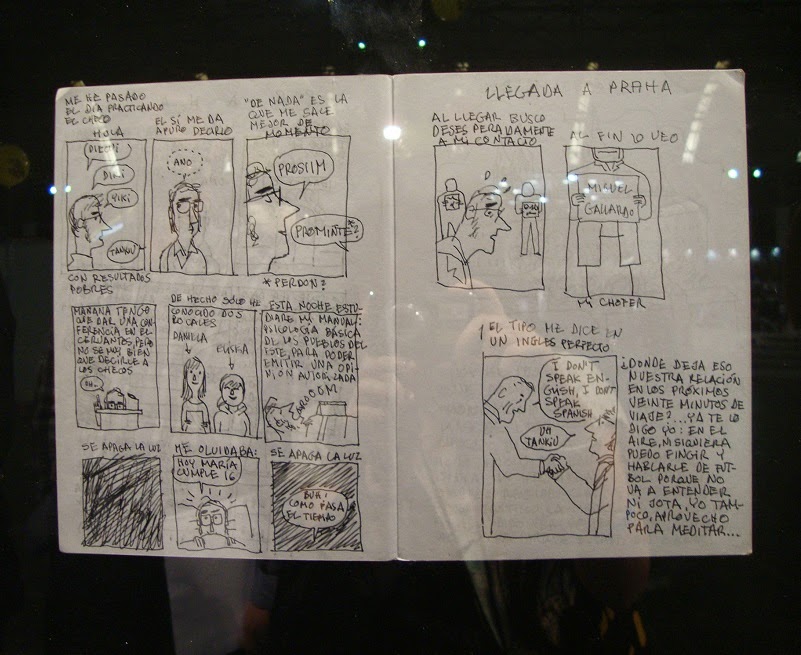 ME HE PASADO
EL DÍA PRACTICANDO
EL CHECO
HOLA
DIKI
YIKI
TANKIU
CON RESULTADOS
POBRES
EL SÍ ME DA
APURO DECIRLO
ANO
"DE NADA" ES LA
QUE ME SALE
MEJOR DE
MOMENTO
PROSIIM
PROMINTE*?
* PERDON?
MAÑANA TENGO
QUE DAR UNA CON-
FERENCIA EN EL
CERVANTES, PERO
NO SE MUY BIEN
QUE DECIRLE A
LOS CHECOS
DE HECHO SÓLO HE
CONOCIDO DOS
LOCALES
DANIELA
ESTA NOCHE ESTU-
DIARE MI MANUAL:
PSICOLOGÍA BÁSICA
DE LOS PUEBLOS DEL
ESTE, PARA PODER
EMITIR UNA OPI-
NION AUTORIZADA
SE APAGA LA LUZ
ME OLVIDABA:
HOY MARÍA
CUMPLE 16
SE APAGA LA LUZ
BUH!
COMO PASA
EL TIEMPO
LLEGADA A PRAHA
AL LLEGAR BUSCO
DESESPERADAMENTE
A MI CONTACTO
AL FIN LO VEO
MIGUEL
GALLARDO
MI CHOFER
EL TIPO ME DICE EN
UN INGLES PERFECTO
I DON'T
SPEAK EN-
GLISH, I DON'T
SPEAK
SPANISH
UH
TANKIU
¿DONDE DEJA ESO
NUESTRA RELACIÓN
EN LOS PRÓXIMOS
VEINTE MINUTOS DE
VIAJE?... YA TE LO
DIGO YO: EN EL
AIRE, NI SIQUIERA
PUEDO FINGIR Y
HABLARLE DE FUT-
BOL PORQUE NO
VA A ENTENDER
NI JOTA, YO TAM-
POCO, APROVECHO
PARA MEDITAR...